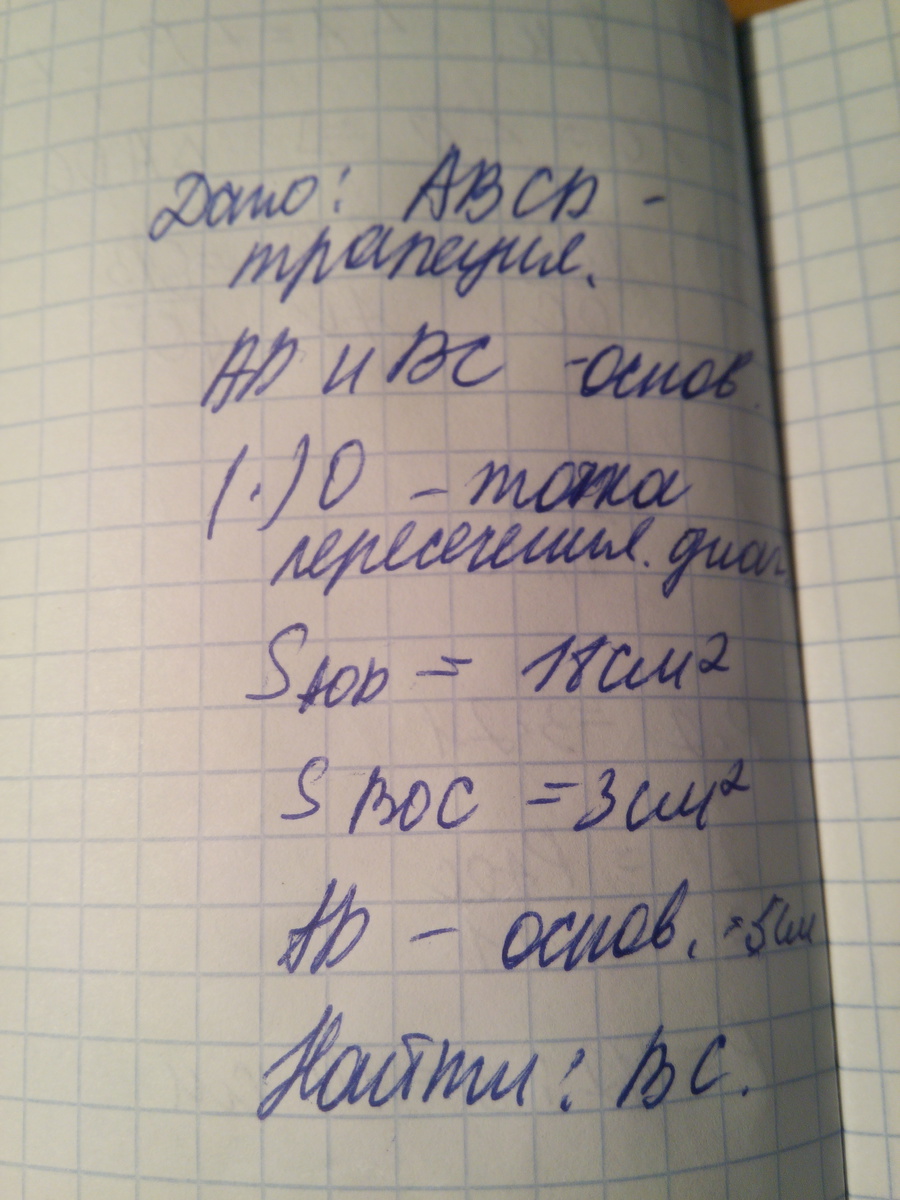 Дано: ABCD -
трапеция.
AD и BC - основ.
(·) O - точка
пересечения. диаг.
S AOD = 18 см²
S BOC = 3 см²
AD - основ. = 5 см
Найти: BC.